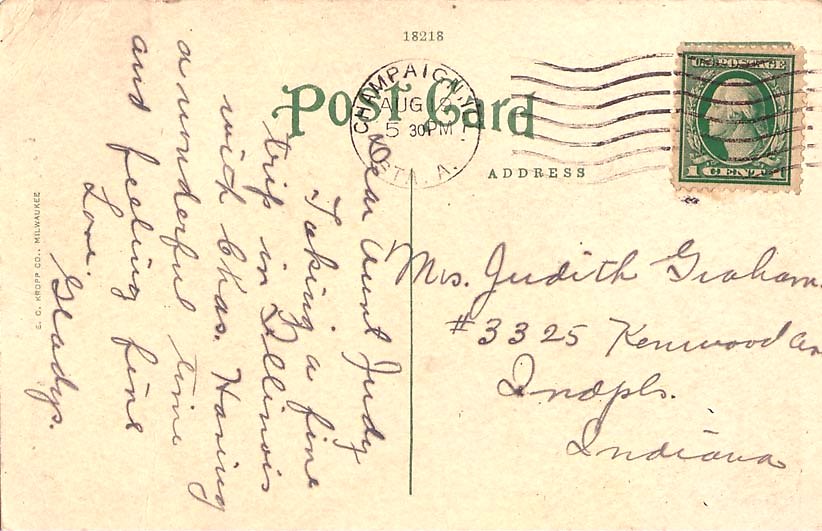 18218
Post Card
CHAMPAIGN, ILL.
AUG 18
5 30PM
STA. A.
U.S. POSTAGE
1 CENT 1
ADDRESS
Dear Aunt Judy
Taking a fine
trip in Illinois
with Chas. Having
a wonderful time
and feeling fine
Love.
Gladys.
Mrs. Judith Graham.
#3325 Kenwood Av
Indpls.
Indiana
E. C. KROPP CO., MILWAUKEE